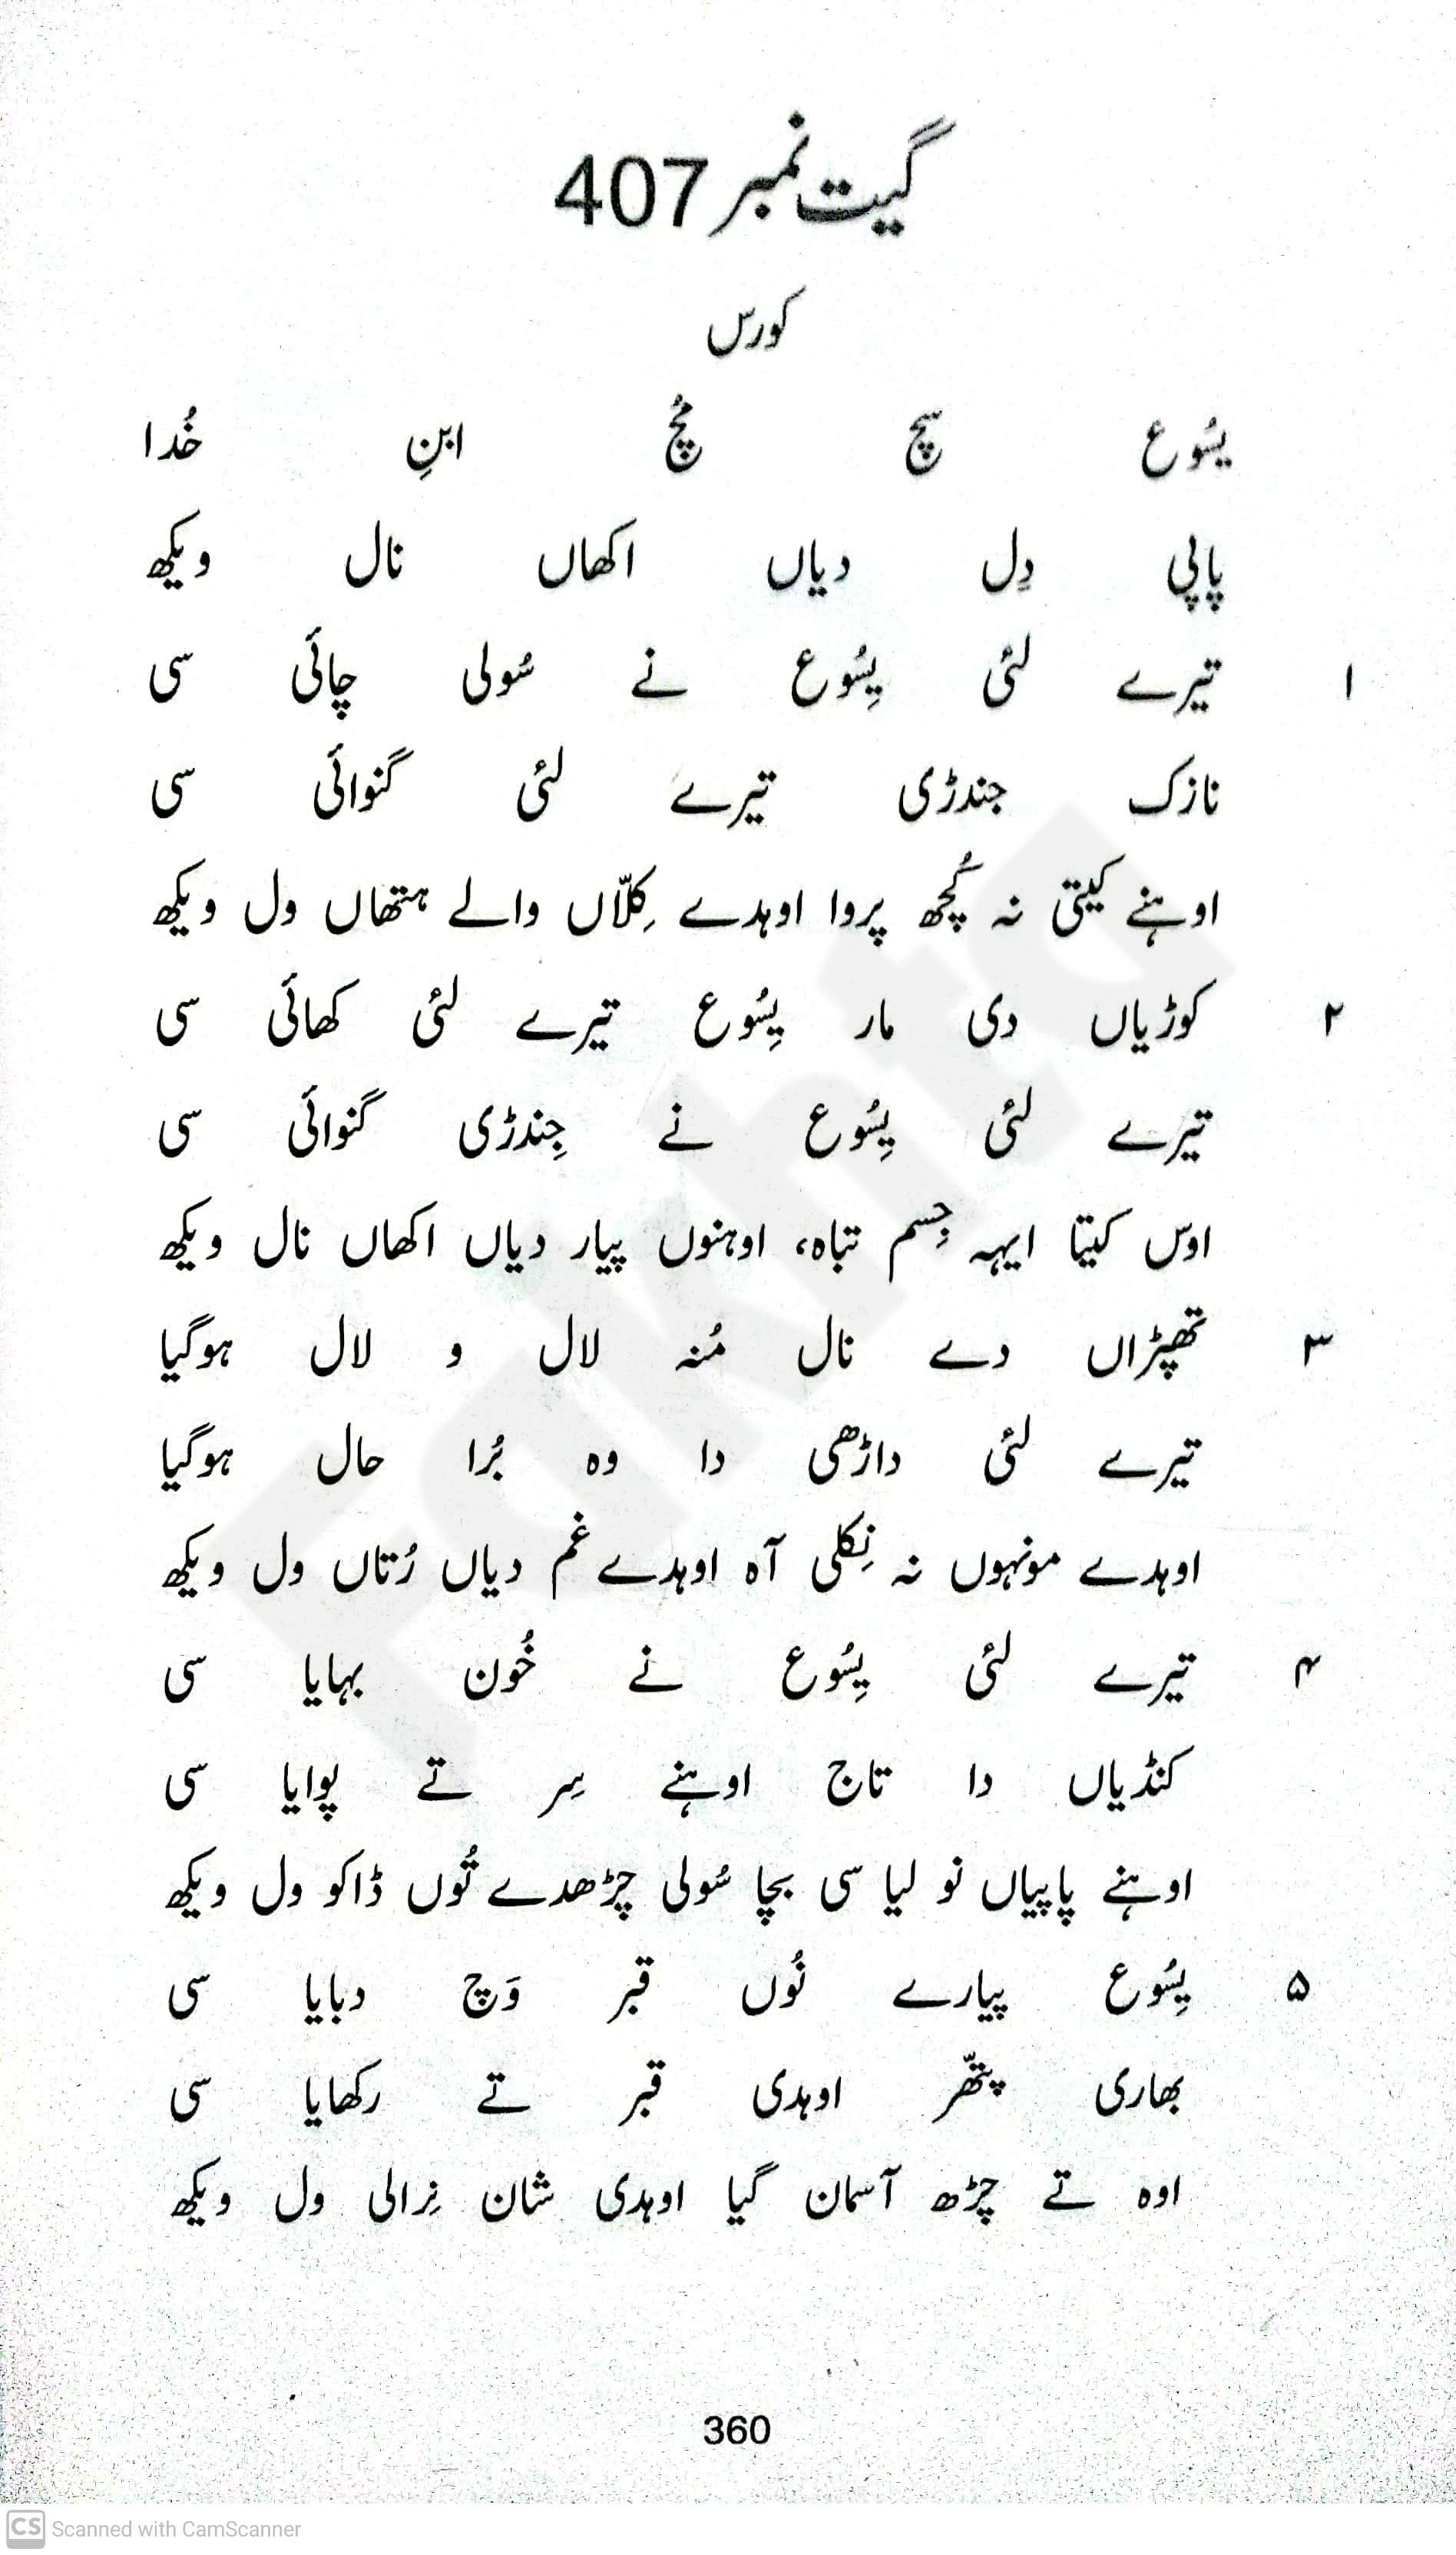 گیت نمبر 407
کورس
یسُوع سچ مُچ ابنِ خُدا
پاپی دِل دیاں اکھاں نال ویکھ
۱ تیرے لئی یِسُوع نے سُولی چائی سی
نازک جندڑی تیرے لئی گنوائی سی
اوہنے کیتی نہ کُچھ پروا اوہدے کِلّاں والے ہتھاں ول ویکھ
۲ کوڑیاں دی مار یِسُوع تیرے لئی کھائی سی
تیرے لئی یِسُوع نے جِندڑی گنوائی سی
اوس کیتا ایہہ جِسم تباہ، اوہنوں پیار دیاں اکھاں نال ویکھ
۳ تھپڑاں دے نال مُنہ لال و لال ہوگیا
تیرے لئی داڑھی دا وہ بُرا حال ہوگیا
اوہدے مونہوں نہ نِکلی آہ اوہدے غم دیاں رُتاں ول ویکھ
۴ تیرے لئی یِسُوع نے خُون بہایا سی
کنڈیاں دا تاج اوہنے سِر تے پوایا سی
اوہنے پاپیاں نو لیا سی بچا سُولی چڑھدے تُوں ڈاکو ول ویکھ
۵ یِسُوع پیارے نُوں قبر وَچ دبایا سی
بھاری پتھّر اوہدی قبر تے رکھایا سی
اوہ تے چڑھ آسمان گیا اوہدی شان نِرالی ول ویکھ
360
CS Scanned with CamScanner
Fakhta